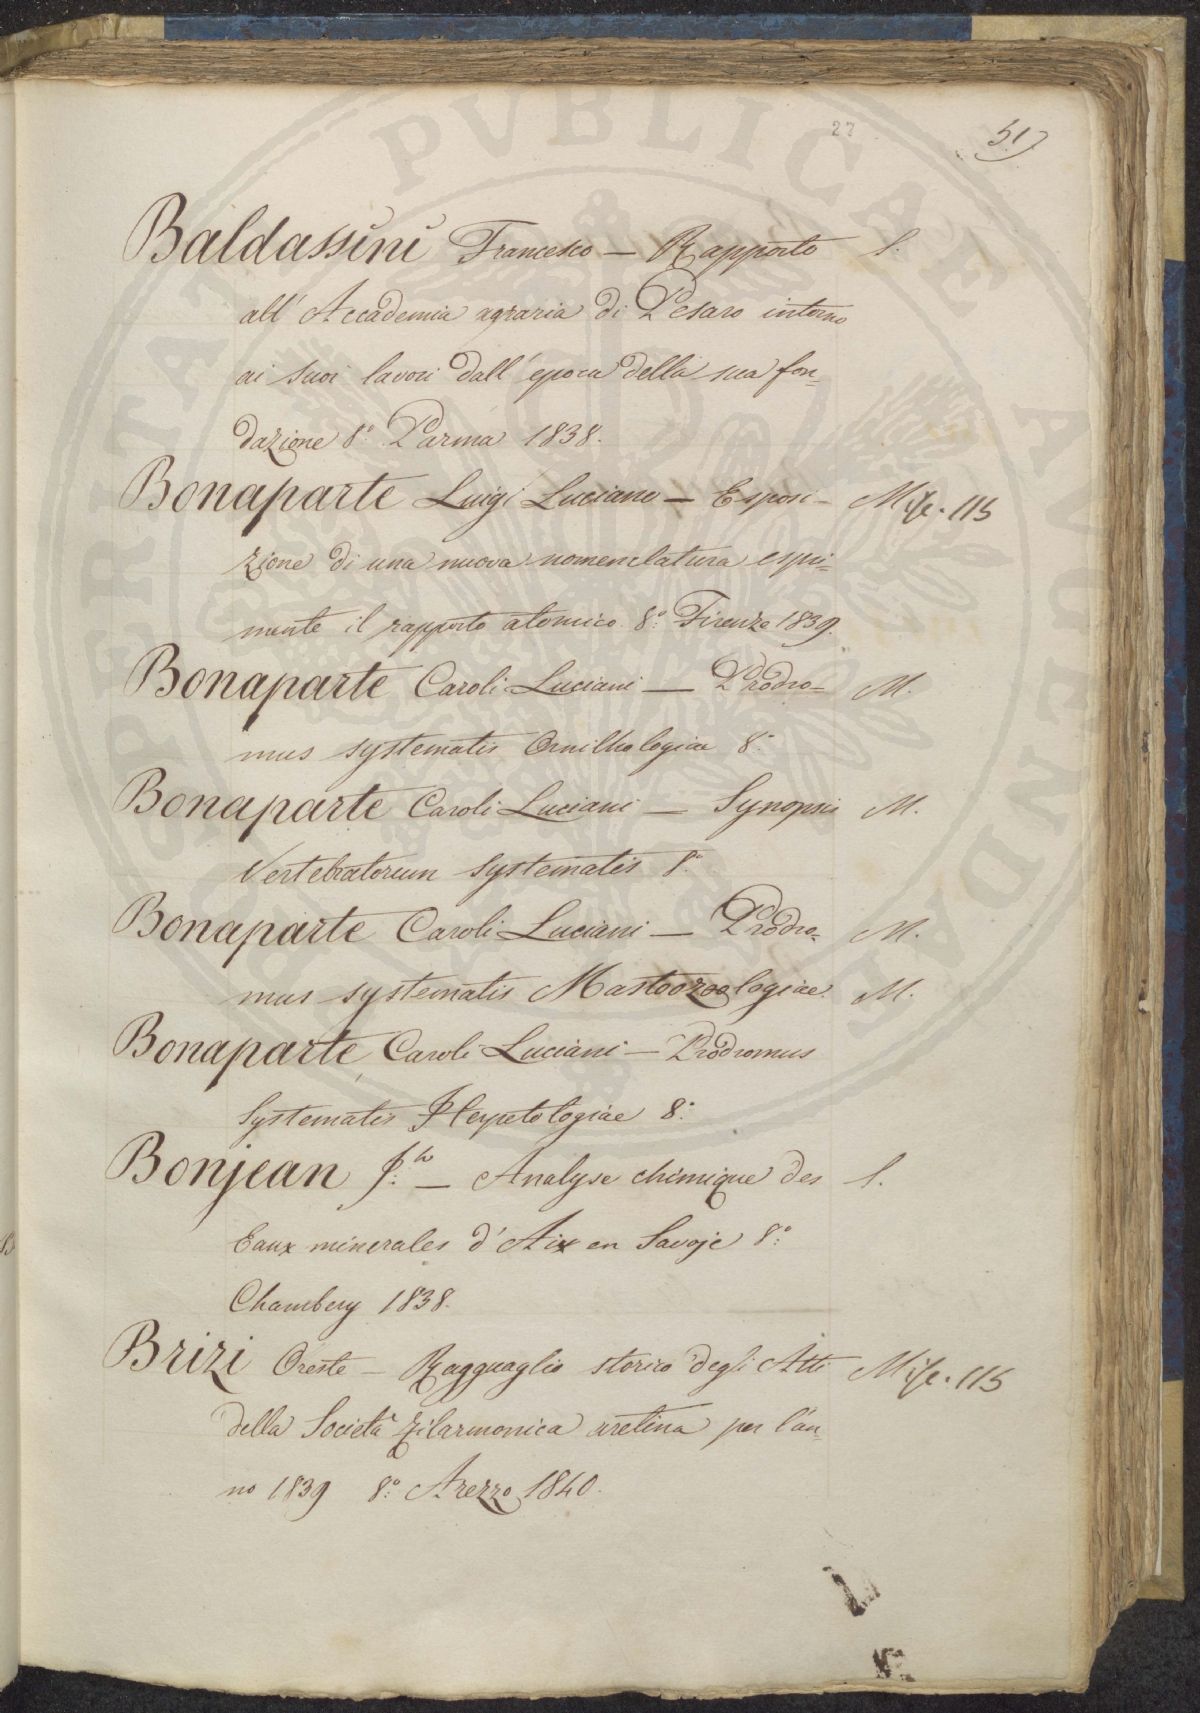 27
51)
Baldassini Francesco — Rapporto S.
all' Accademia agraria di Pesaro intorno
ai suoi lavori dall' epoca della sua fon=
dazione 8.º Parma 1838.
Bonaparte Luigi Luciano — Esposi= Misc. 115
zione di una nuova nomenclatura espri=
mente il rapporto atomico 8.º Firenze 1839.
Bonaparte Caroli Luciani — Prodro= M.
mus systematis Ornithologiae 8.º
Bonaparte Caroli Luciani — Synopsis M.
Vertebratorum systematis 8.º
Bonaparte Caroli Luciani — Prodro= M.
mus systematis Mastoozoologiae. M.
Bonaparte Caroli Luciani — Prodromus
Systematis Herpetologiae 8.º
Bonjean J.ph — Analyse chimique des S.
Eaux minerales d'Aix en Savoje 8.º
Chambery 1838.
Brizi Oreste — Ragguaglio storico degli Atti Misc. 115
della Società filarmonica aretina per l'an=
no 1839 8.º Arezzo 1840.
PROSPERITATI PVBLICAE AVGENDAE